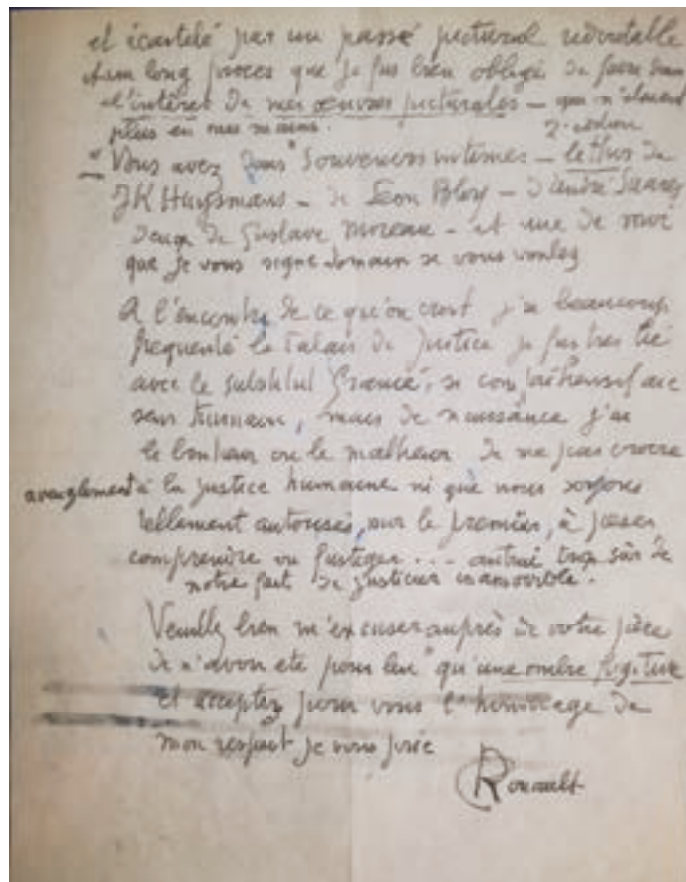 et écartelé par un passé pictural redoutable
et un long procès que je fus bien obligé de faire dans
l'intérêt de mes œuvres picturales – qui n'étaient
plus en mes mains.
2e édition
" Vous avez dans " Souvenirs intimes – le Hus de
JK Huysmans – de Léon Bloy – d'André Suarès
deux de Gustave Moreau – et une de moi
que je vous signe demain si vous voulez
A l'encontre de ce qu'on croit j'ai beaucoup
fréquenté le Palais de Justice je fus très lié
avec le substitut Granié, si compréhensif avec
sens humain, mais de naissance j'ai
le bonheur ou le malheur de ne pas croire
aveuglement à la justice humaine ni que nous soyons
tellement autorisés, moi le premier, à peser
comprendre ou fustiger . . . autrui trop sûr de
notre fait de justicier inamovible.
Veuillez bien m'excuser auprès de votre père
de n'avoir été pour lui " qu'une ombre fugitive
et acceptez pour vous l'hommage de
mon respect je vous prie
GRouault